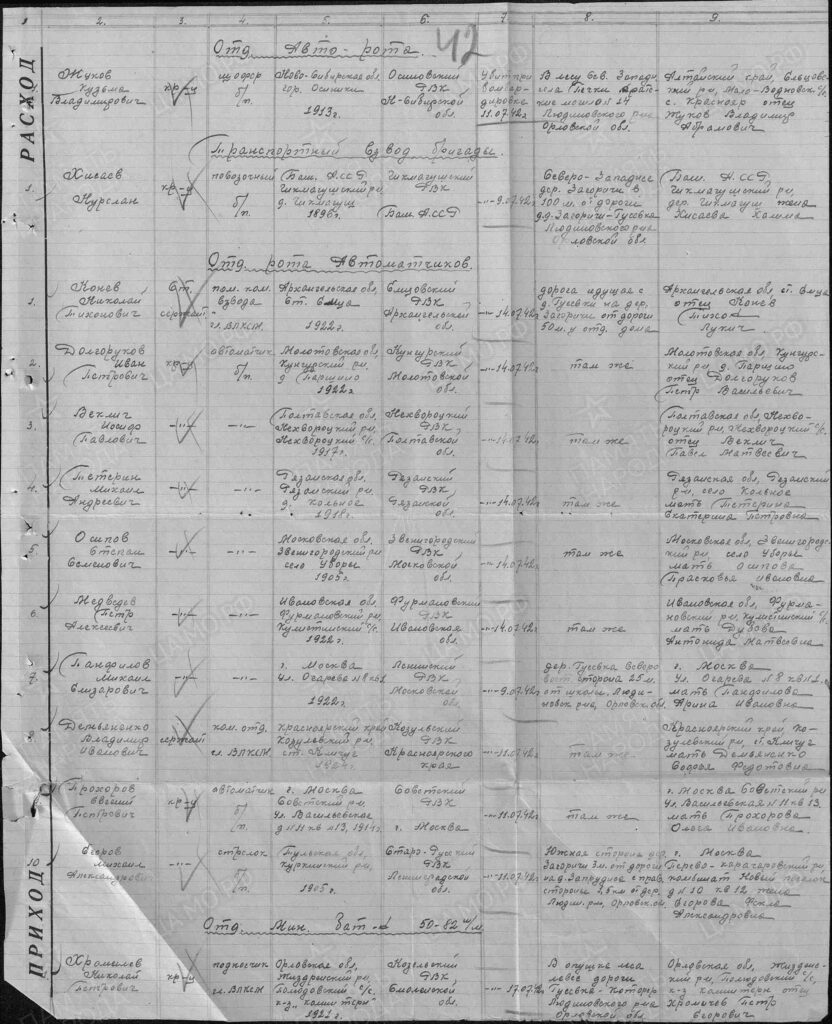 1 2. 3. 4. 5. 6. 7. 8. 9.
РАСХОД
42
Отд. Авто-рота.
Жуков Кузьма Владимирович
кр-ц
шофер б/п.
Ново-Сибирская обл, гор. Осинники 1913г.
Осиновский РВК Н-Сибирской обл.
Убит при бомбардировке 11.07.42г
В лесу Сев. Запад села Печки братские могила N 14 Людиновского р-на Орловской обл.
Алтайский край, Ельцовский р-н, с. Краснояр отец Жуков Владимир Абрамович
Транспортный взвод бригады.
1. Хисаев Нурслан
кр-ц
повозочный б/п.
Баш. АССР Чикмагушский р-н, д. Чикмагуш 1896г.
Чикмагушский РВК Баш. АССР
-"- 9.07.42г
Северо-Западнее дер. Загоричи в 100 м. от дороги д.д. Загоричи-Гусевка Людиновского р-на Орловской обл.
Баш. АССР Чикмагушский р-н, дер. Чикмагуш жена Хисаева
Отд. рота Автоматчиков.
1. Конев Николай Тихонович
Ст. сержант
пом. ком. взвода чл. ВЛКСМ.
Архангельская обл, ст. Емца 1922г.
Емцовский РВК Архангельской обл.
-"- 14.07.42г
дорога идущая с д. Гусевки на дер. Загоричи от дороги 50м. у отд. дома
Архангельская обл. ст. Емца отец Конев Тихон Лукич.
2. Долгоруков Иван Петрович
кр-ц
автоматчик б/п.
Молотовская обл, Кунгурский р-н, д. Паршино 1922г
Кунгурский РВК Молотовской обл.
-"- 14.07.42г
там же
Молотовская обл, Кунгурский р-н, д. Паршино отец Долгоруков Петр Васильевич
3. Веклич Иосиф Павлович
-"-
-"-
Полтавская обл, Нехворощский р-н, Нехворощский с/с. 1917г.
Нехворощский РВК, Полтавской обл.
-"- 14.07.42г
там же
Полтавская обл, Нехворощкий р-н, Нехворощкий с/с. отец Веклич Павел Матвеевич
4. Тетерин Михаил Андреевич
-"-
-"-
Рязанская обл, Рязанский р-н, д. Кольное 1918г.
Рязанский РВК Рязанской обл.
-"- 14.07.42г
там же
Рязанская обл, Рязанский р-н, село Кольное мать Тетерина Екатерина Петровна
5. Осипов Степан Семенович
-"-
-"-
Московская обл, Звенигородский р-н село Уборы 1905г.
Звенигородский РВК Московской обл.
-"- 14.07.42г
там же
Московская обл, Звенигородский р-н, село Уборы мать Осипова Прасковья Ивановна
6. Медведев Петр Алексеевич
-"-
-"-
Ивановская обл, Фурмановский р-н, 1922г.
Фурмановский РВК Ивановской обл.
-"- 14.07.42г
там же
Ивановская обл, Фурмановский р-н, мать Дубова Антонида Матвеевна
7. Панфилов Михаил Елизарович
-"-
-"-
г. Москва Ул. Огарева N 8 кв1 1922г.
Ленинский РВК Московской обл.
-"- 9.07.42г
дер. Гусевка Северовост. сторона 25м. от школы, Людиновск. р-на, Орловск. обл.
г. Москва Ул. Огарева N 8 кв N 1. мать Панфилова Арина Ивановна
8. Демьяненко Владимир Иванович
сержант
ком. отд. чл. ВЛКСМ.
Красноярский край Козульский р-н, ст. Кичуг
Козульский РВК Красноярского края
-"- 11.07.42г
там же
Красноярский край, Козулевский р-н, ст. Кичуг мать Демьяненко Софья Федотовна
Прохоров Евгений Петрович
кр-ц
автоматчик б/п.
г. Москва Советский р-н, Ул. Васильевское д N 11 кв N 13, 1914г.
Советский РВК г. Москва
-"- 11.07.42г
там же
г. Москва Советский р-н Ул. Васильевская N 11 кв 13, мать Прохорова Ольга Ивановна.
10. Егоров Михаил Александрович
-"-
стрелок б/п.
Тульская обл, Куркинский р-н, 1905г.
Старо-Русский РВК Ленинградской обл.
-"- 11.07.42г
Южная сторона дер. Загоричи 3м. от дороги на д. Запрудное с прав. стороны 25м от дер. Людин. р-н, Орловск. об.
г. Москва Перово-Карачаровский р-н, Новый поселок д N 10 кв 12 жена Егорова Фекла Александровна
ПРИХОД
Отд. Мин. Бат-н 50-82 м/м.
Хромычев Николай Петрович
кр-ц
подносчик чл. ВЛКСМ
Орловская обл, Жиздренский р-н, Полюдовский с/с, к-з "Коминтерн" 1921г.
Козельский РВК, Смоленской обл.
-"- 17.07.42г
В опушке леса левее дороги Гусевка-Которец Людиновского р-на Орловской обл.
Орловская обл, Жиздренский р-н, Полюдовский с/с, к-з Коминтерн отец Хромычев Петр Егорович